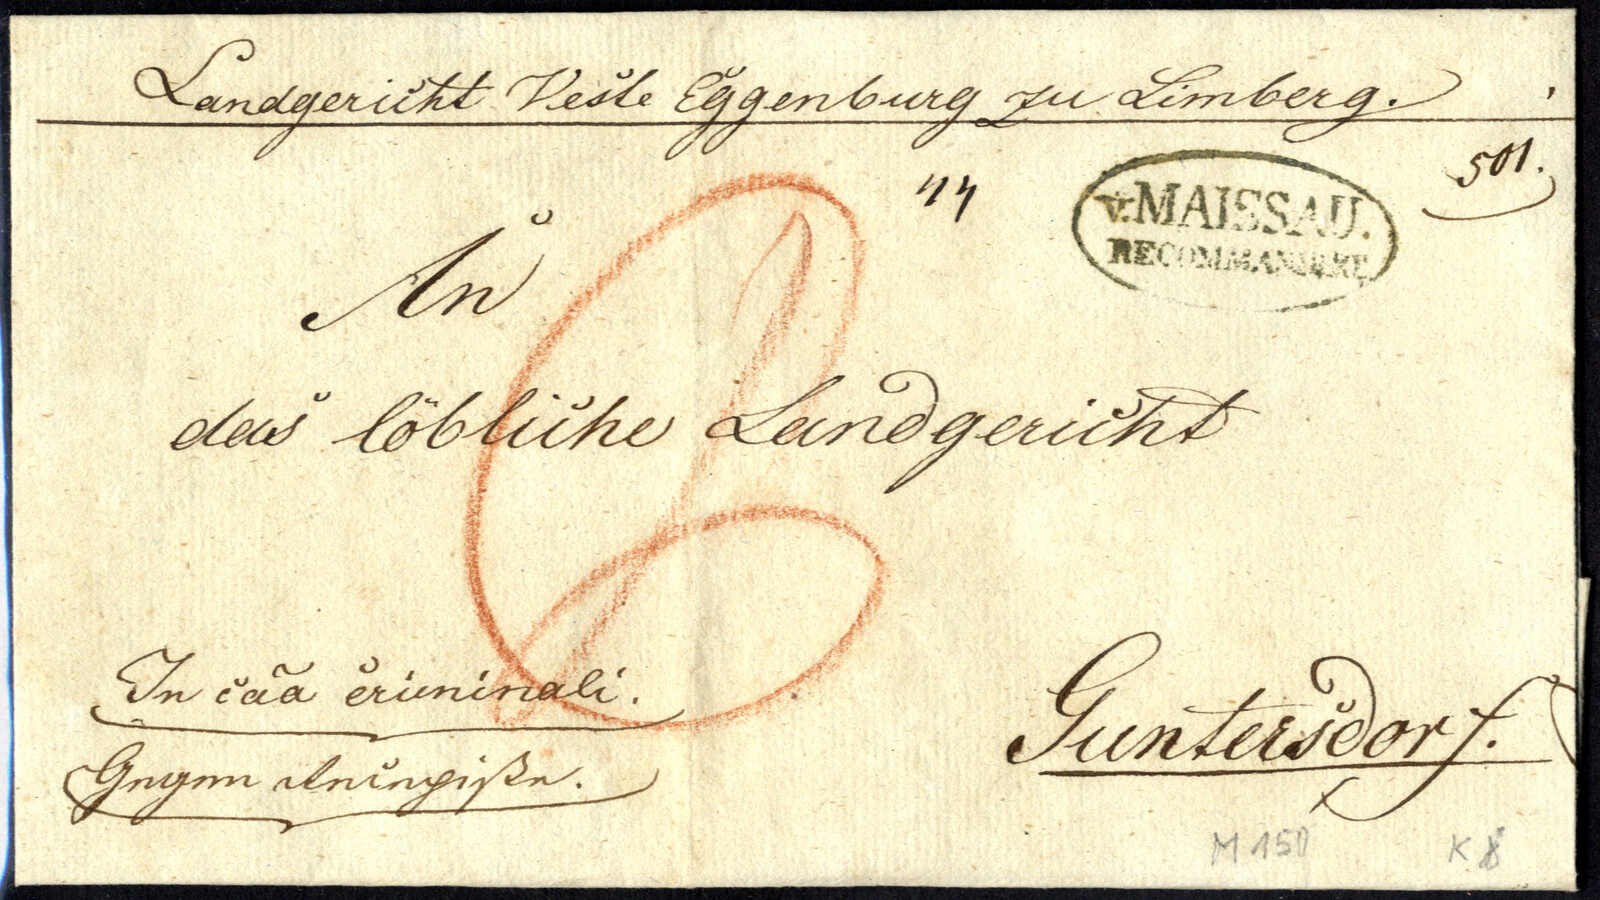 Landgericht Veste Eggenburg zu Limberg.
501.
v. MAISSAU.
RECOMMANDIRT
An
das löbliche Landgericht
In c̃ãa criminali.
Gegen
Guntersdorf.
M 150 K